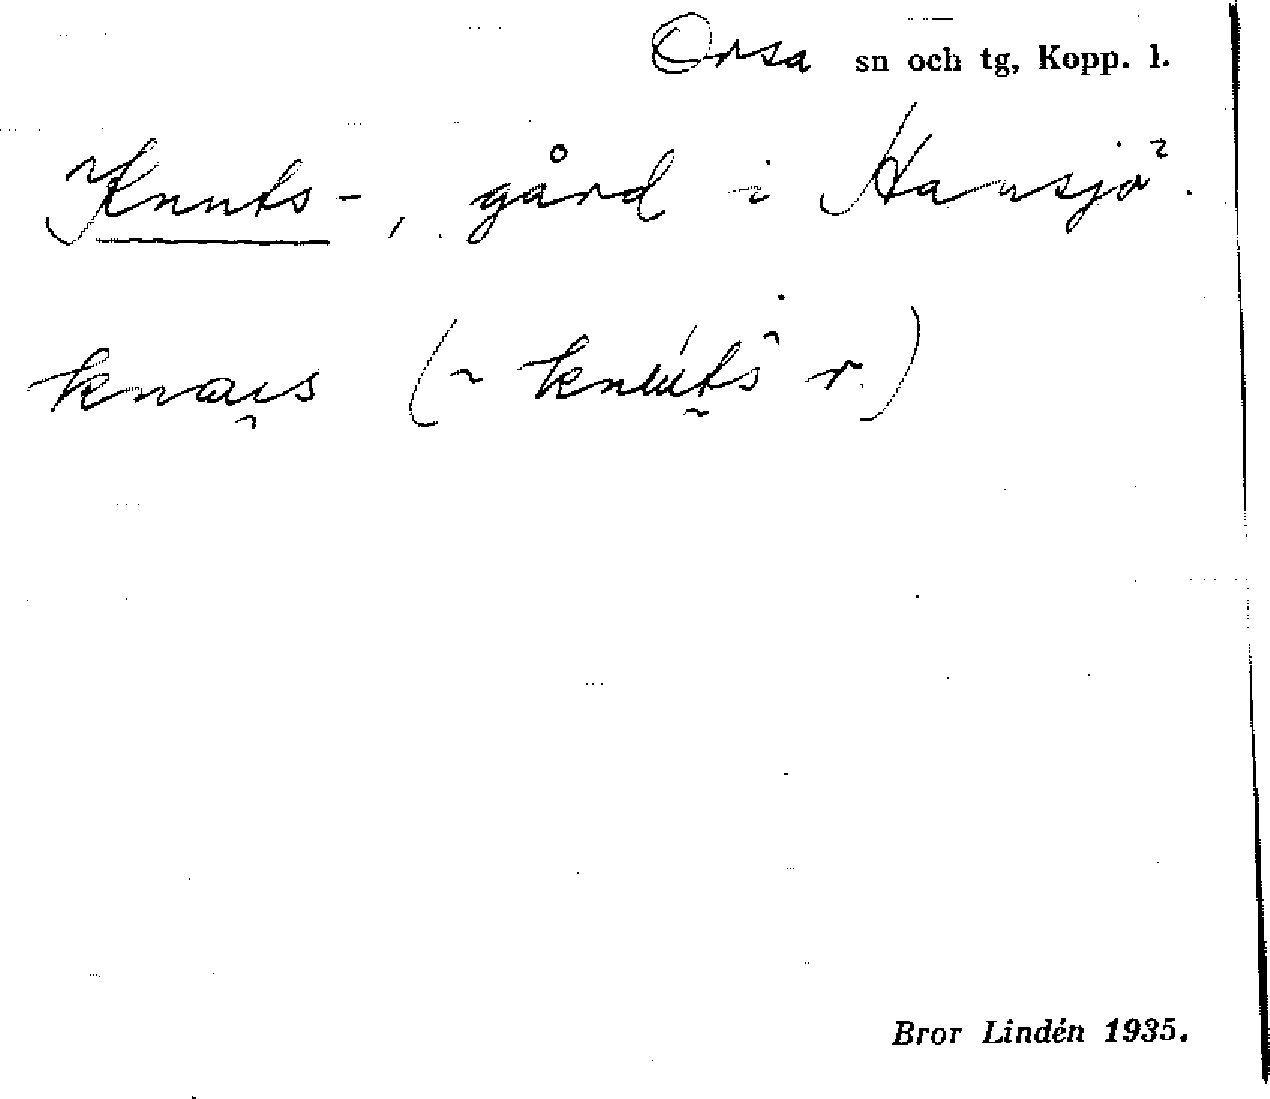 Orsa sn och tg, Kopp. l.
Knuts-, gård i Hansjö.
knaus (~ knuts r.)
Bror Lindén 1935.